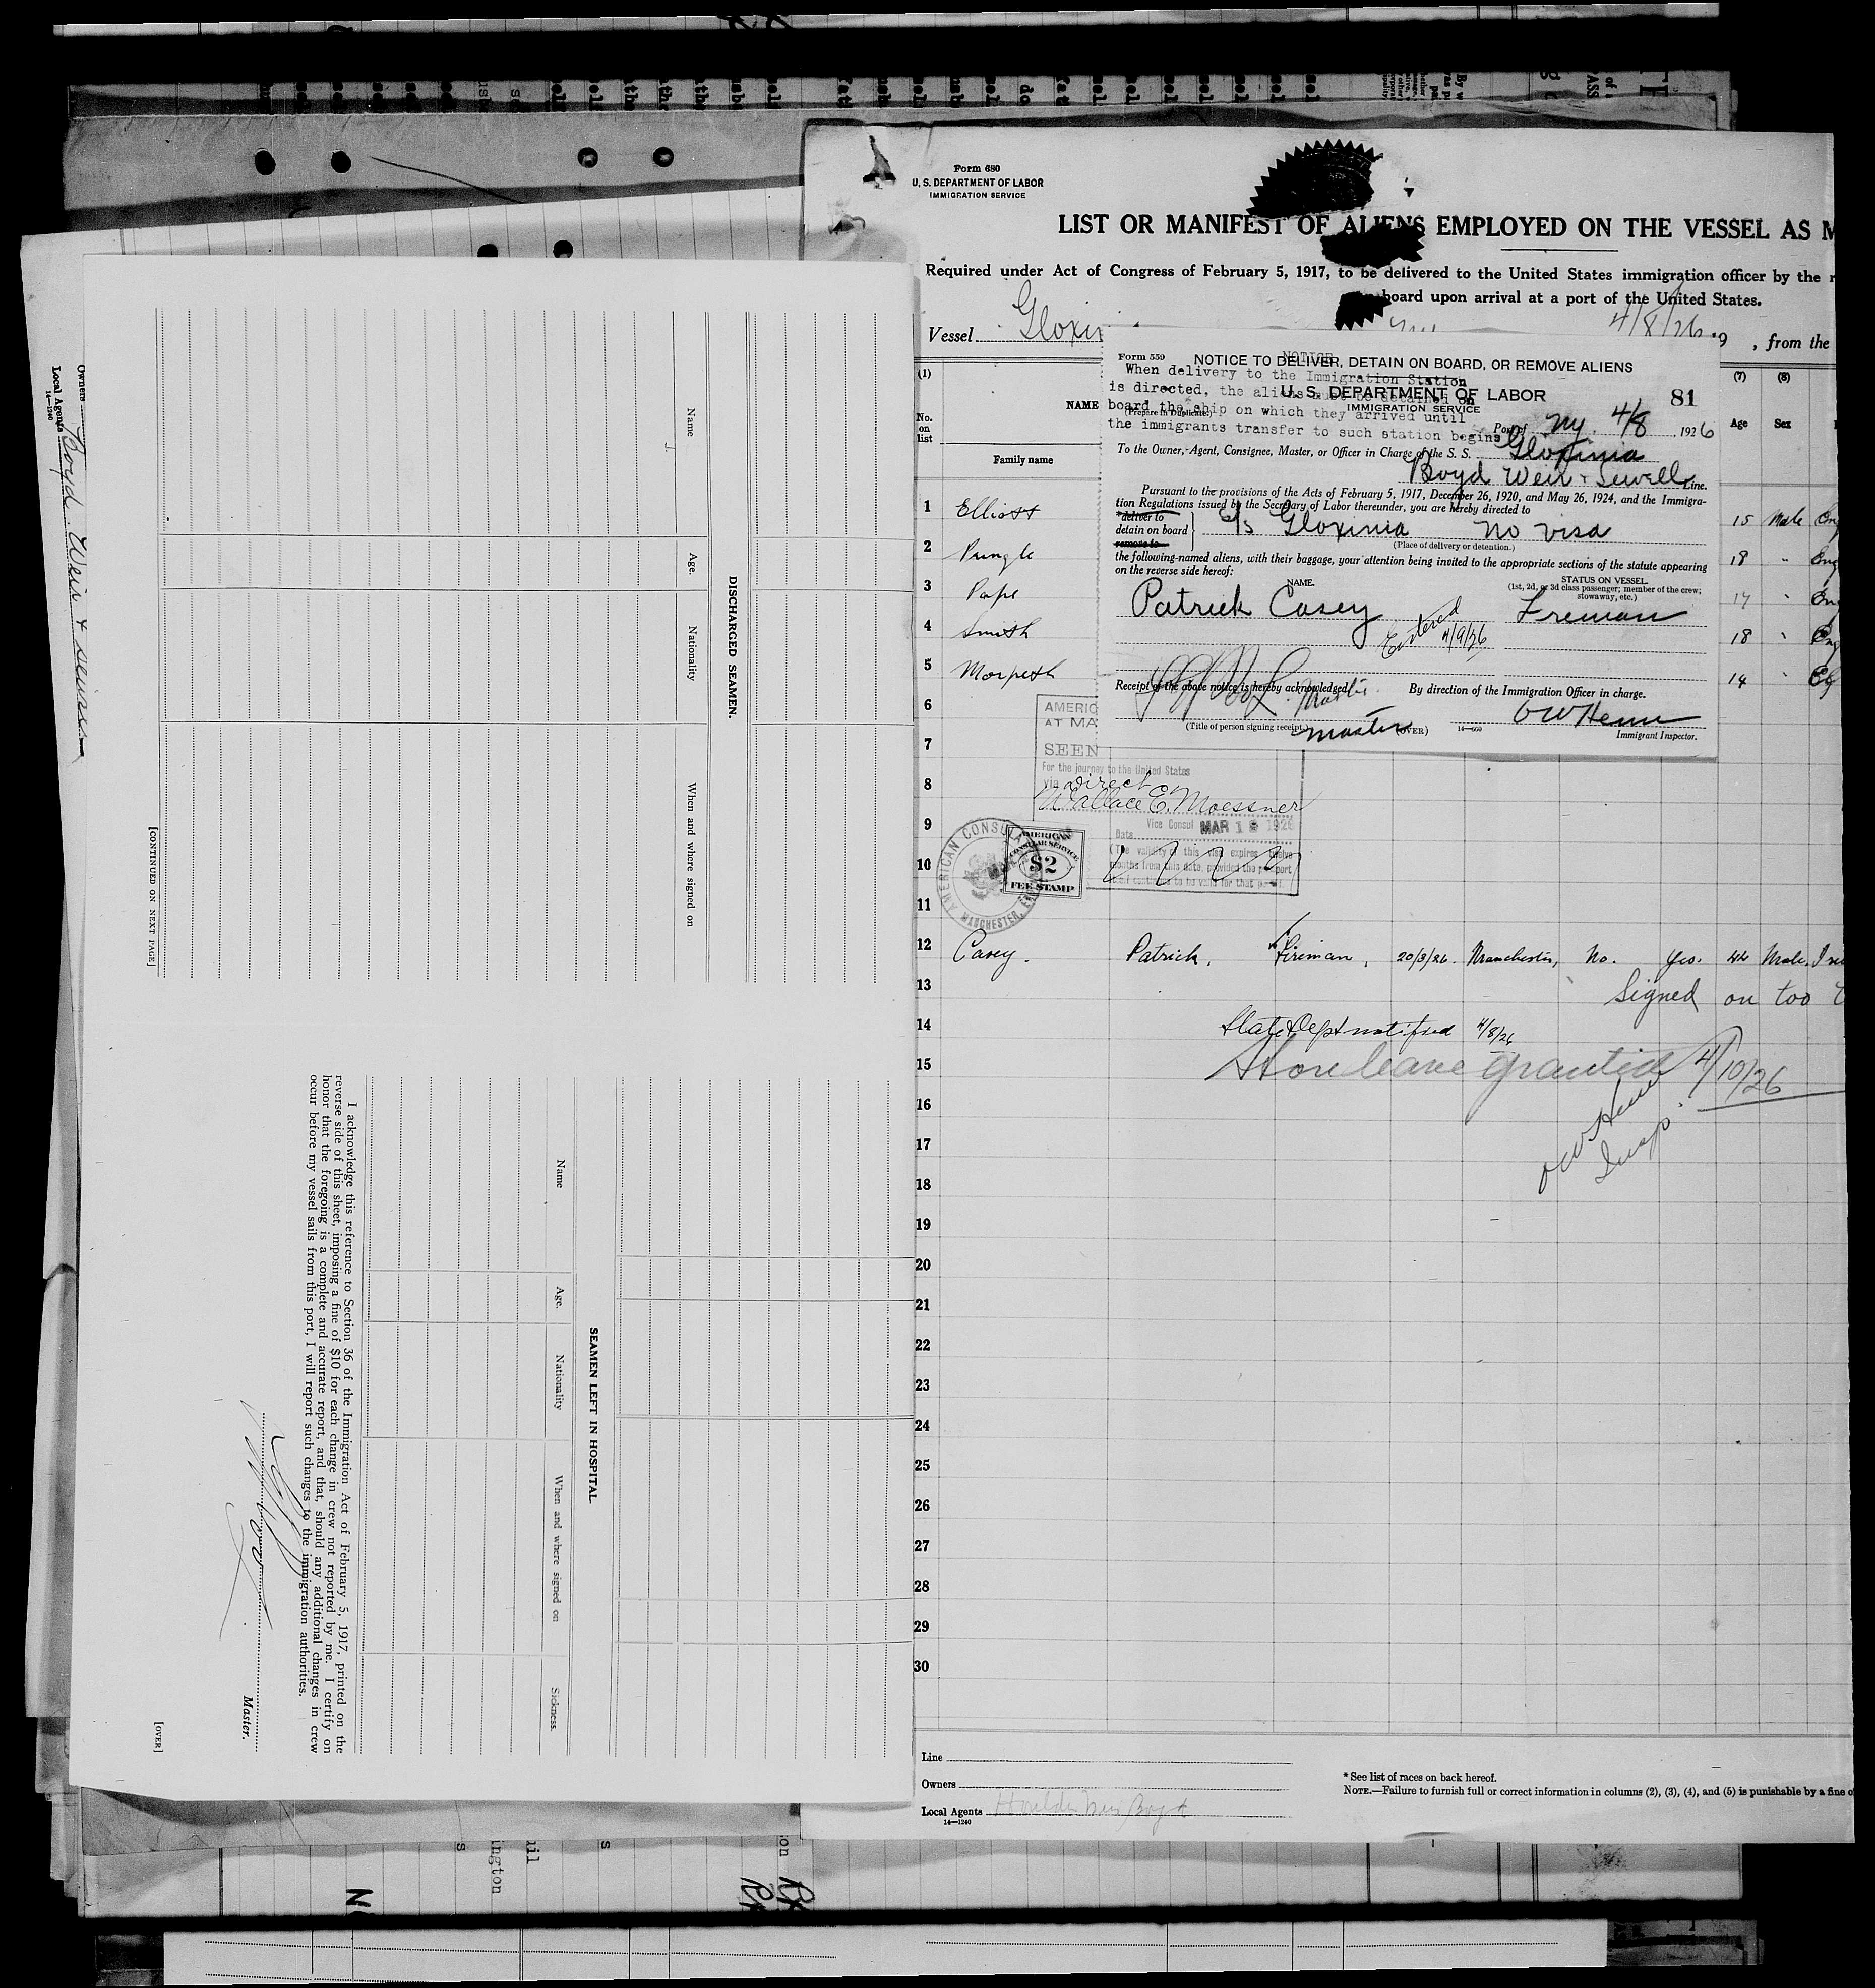 Form 680
U. S. DEPARTMENT OF LABOR
IMMIGRATION SERVICE
LIST OR MANIFEST OF ALIENS EMPLOYED ON THE VESSEL AS M
Required under Act of Congress of February 5, 1917, to be delivered to the United States immigration officer by the
board upon arrival at a port of the United States.
Vessel Gloxin 4/8/26 19 , from the
(1)
No. on list
NAME
Family name
(7) (8)
Age Sex
1 Elliott 15 Male Eng
2 Pringle 18 " Eng
3 Pape 17 " Eng
4 Smith 18 " Eng
5 Morpeth 14 " Eg
6
7
8
9
10
11
12 Casey. Patrick, Fireman, 20/3/26. Manchester, No. Yes. 44 Male.
13 Signed on too
14 State Dept notified 4/8/26
15 Shore leave granted 4/10/26
16
OW Henn
Insp.
17
18
19
20
21
22
23
24
25
26
27
28
29
30
Line
Owners
Local Agents Houlder Weir Boyd
14—1240
* See list of races on back hereof.
NOTE.—Failure to furnish full or correct information in columns (2), (3), (4), and (5) is punishable by a fine o
Form 559
NOTICE TO DELIVER, DETAIN ON BOARD, OR REMOVE ALIENS
NOTICE
When delivery to the Immigration Station
is directed, the aliens must be detained on
board the ship on which they arrived until
the immigrants transfer to such station begins
U. S. DEPARTMENT OF LABOR
IMMIGRATION SERVICE
81
(Prepare in Duplicate)
Port of Ny. 4/8, 1926
To the Owner, Agent, Consignee, Master, or Officer in Charge of the S. S. Gloxinia
Boyd Weir & Sewell Line.
Pursuant to the provisions of the Acts of February 5, 1917, December 26, 1920, and May 26, 1924, and the Immigra-
tion Regulations issued by the Secretary of Labor thereunder, you are hereby directed to
*deliver to
detain on board
remove to
S/S Gloxinia no visa
(Place of delivery or detention.)
the following-named aliens, with their baggage, your attention being invited to the appropriate sections of the statute appearing
on the reverse side hereof:
NAME.
STATUS ON VESSEL.
(1st, 2d, or 3d class passenger; member of the crew;
stowaway, etc.)
Patrick Casey Fireman
Entered
4/9/26
Receipt of the above notice is hereby acknowledged
Master
By direction of the Immigration Officer in charge.
OW Henn
(Title of person signing receipt.) Master (OVER)
14—660
Immigrant Inspector.
AMERIC
AT MA
SEEN
For the journey to the United States
via direct
Wallace E. Moessner
Vice Consul
Date MAR 1 1926
(The validity of this visa expires twelve
months from this date, provided the passport
continues to be valid for that period.
AMERICAN CONSUL
MANCHESTER, EN
AMERICAN
CONSULAR SERVICE
$2
FEE STAMP
Owners Boyd. Weir & Sewell
Local Agents
14—1240
DISCHARGED SEAMEN.
Name
Age.
Nationality
When and where signed on
[CONTINUED ON NEXT PAGE]
SEAMEN LEFT IN HOSPITAL.
Name
Age.
Nationality
When and where signed on
Sickness.
I acknowledge this reference to Section 36 of the Immigration Act of February 5, 1917, printed on the
reverse side of this sheet, imposing a fine of $10 for each change in crew not reported by me. I certify on
honor that the foregoing is a complete and accurate report, and that, should any additional changes in crew
occur before my vessel sails from this port, I will report such changes to the immigration authorities.
Master.
[OVER]
ington